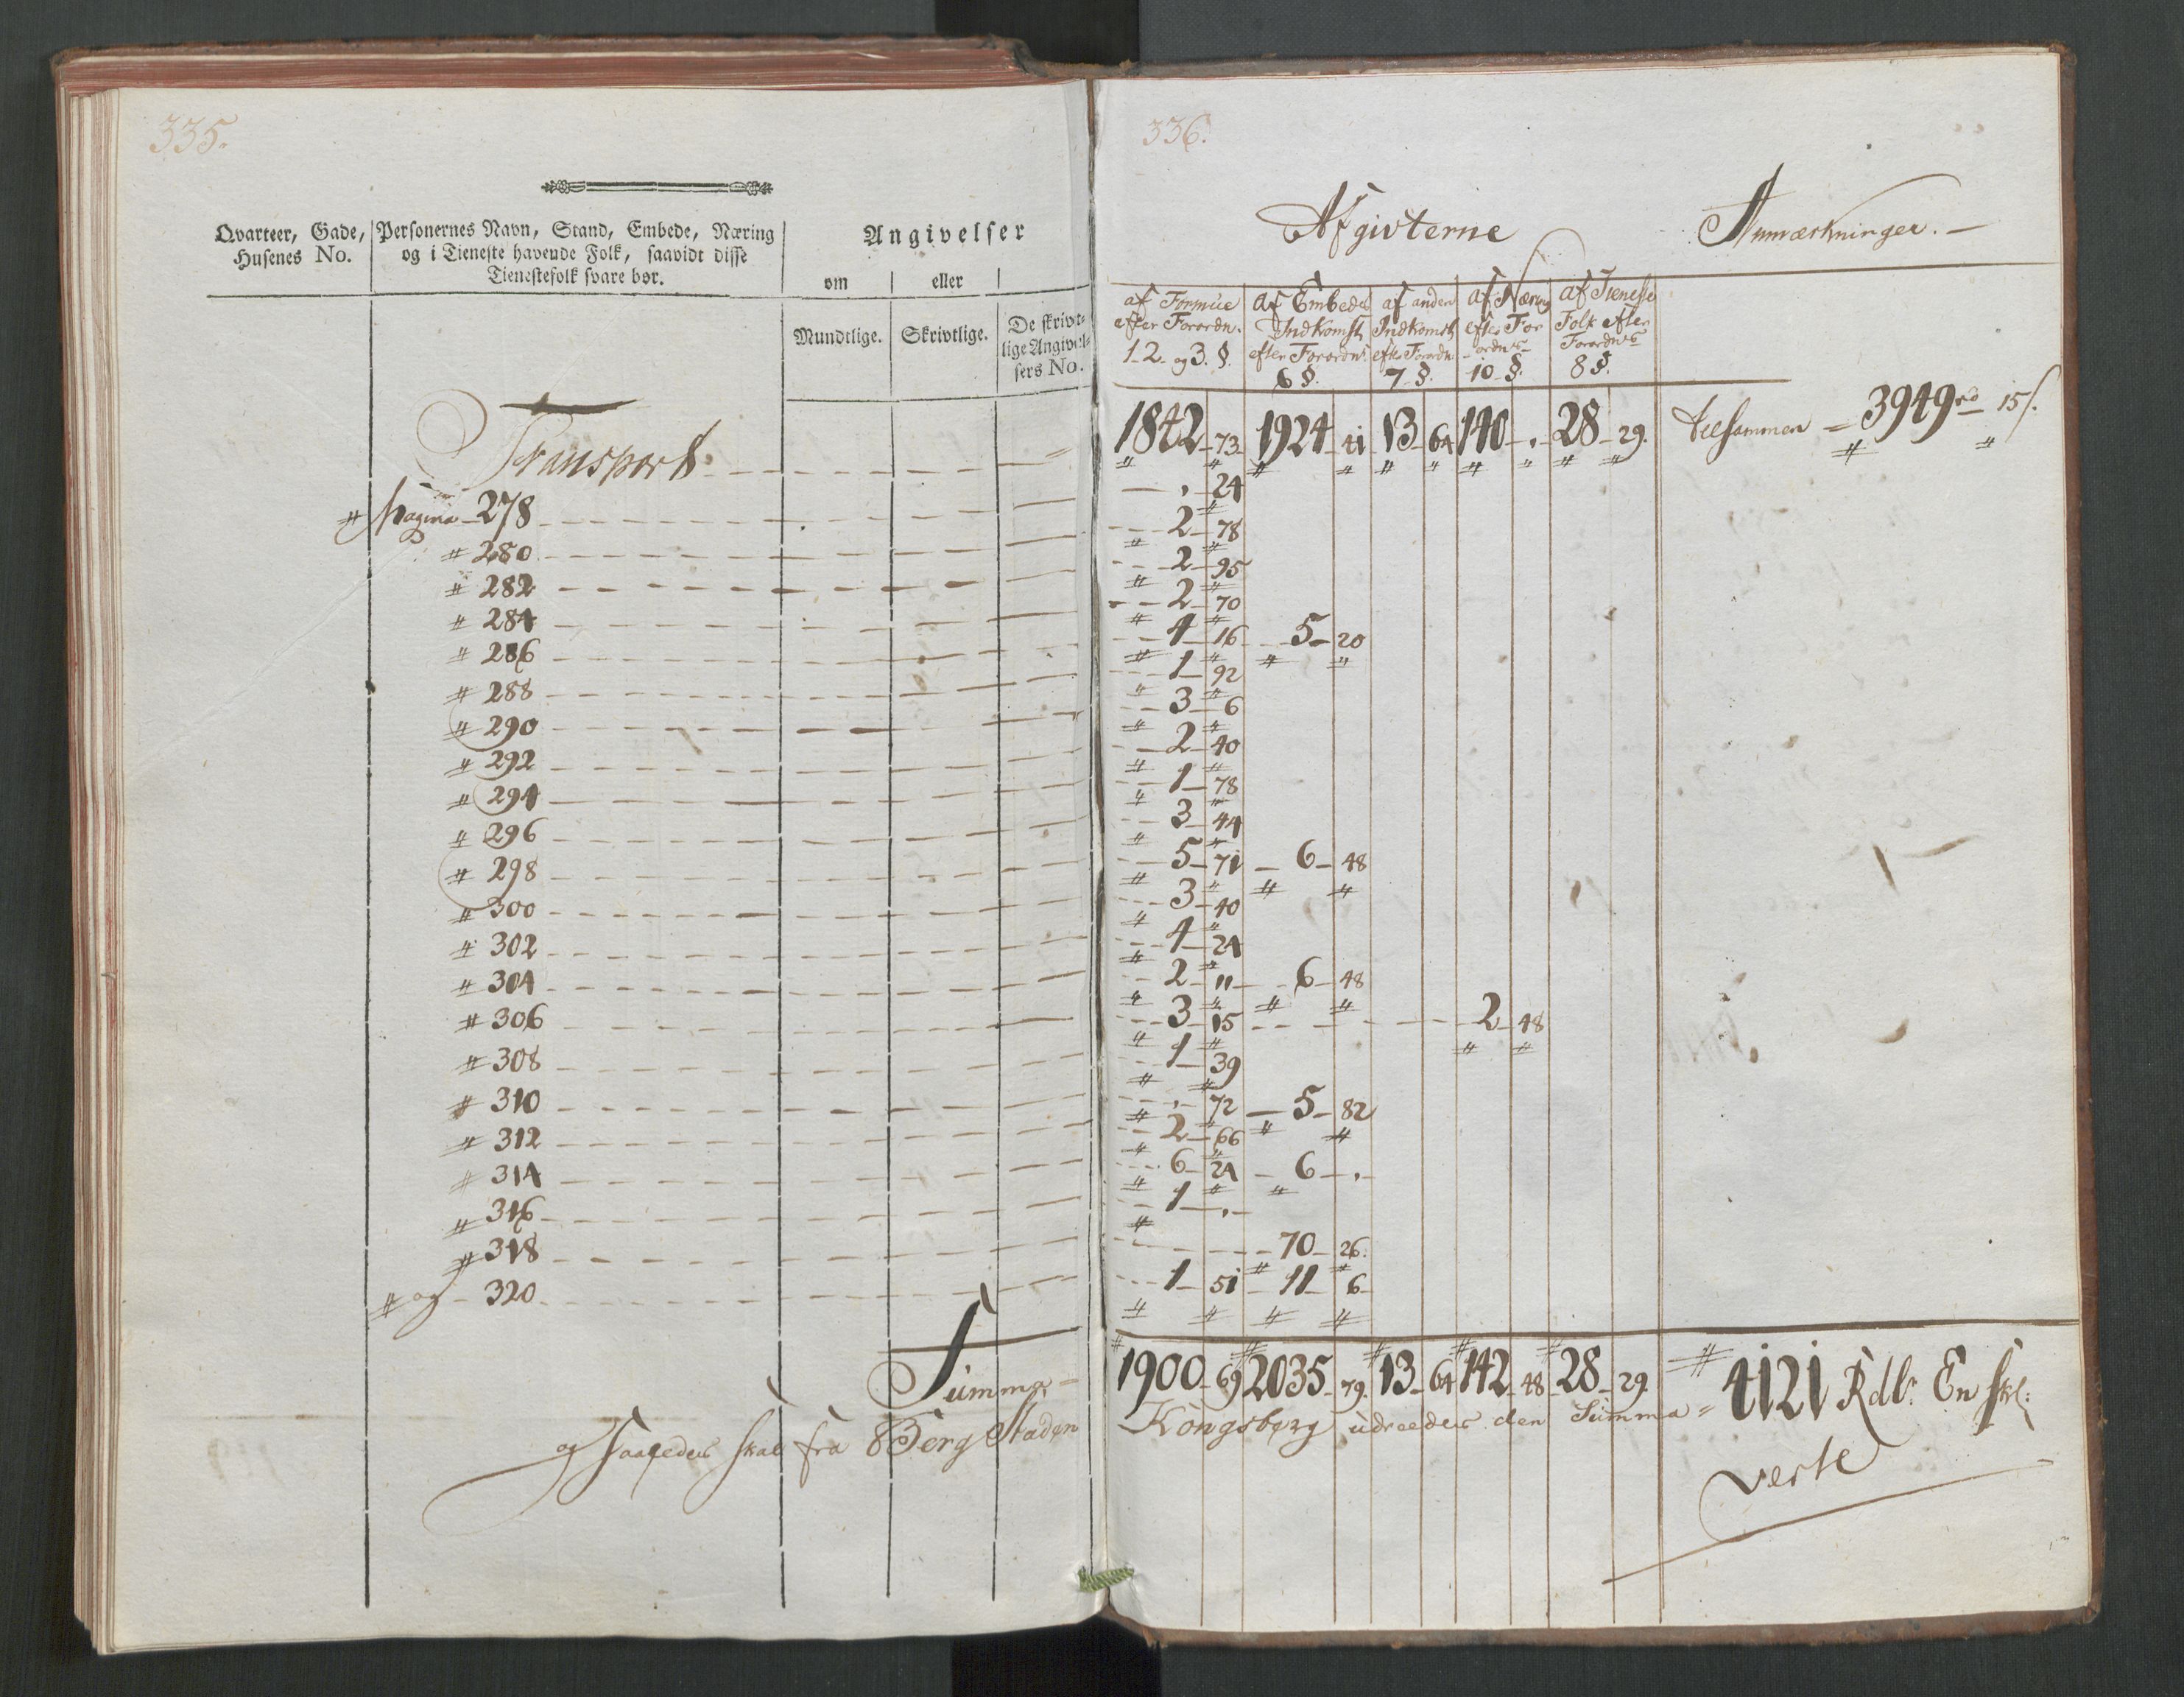 335.
Qvarteer, Gade, Husenes No.
Personernes Navn, Stand, Embede, Næring og i Tieneste havende Folk, saavidt disse Tienestefolk svare bør.
Angivelser
om eller
Mundtlige. Skrivtlige. De skrivt- lige Angivel- sers No.
Transport
pagina 278
〃 280
〃 282
〃 284
〃 286
〃 288
〃 290
〃 292
〃 294
〃 296
〃 298
〃 300
〃 302
〃 304
〃 306
〃 308
〃 310
〃 312
〃 314
〃 316
〃 318
〃 og 320
Summa
og saaledes skal fra Berg Staden
336.
Afgivterne Anmærkninger.
af Formue efter Forordn. 1-2- og 3. §.
af Embeds Indkomst efter Forordn. 6 §.
af anden Indkomst efter Forordn. 7 §.
af Næring efter For ordn. 10 §.
af Tieneste Folk efter Forordn. 8 §.
1842 73 1924 41 13 64 140 . 28 29. tilsammen 3949 rd 15 s.
, 24
2 78
2 95
2 70
4 16 5 20
1 92
3 6
2 40
1 78
3 44
5 71 6 48
3 40
4 24
2 11 6 48
3 15 2 48
1 39
, 72 5 82
2 66
6 24 6 .
1 .
70 26
1 51 11 6
1900 69 2035 79. 13 64 142 48 28 29 4121 Rdlr. En skl:
Kongsberg udreedes den Summa
verte